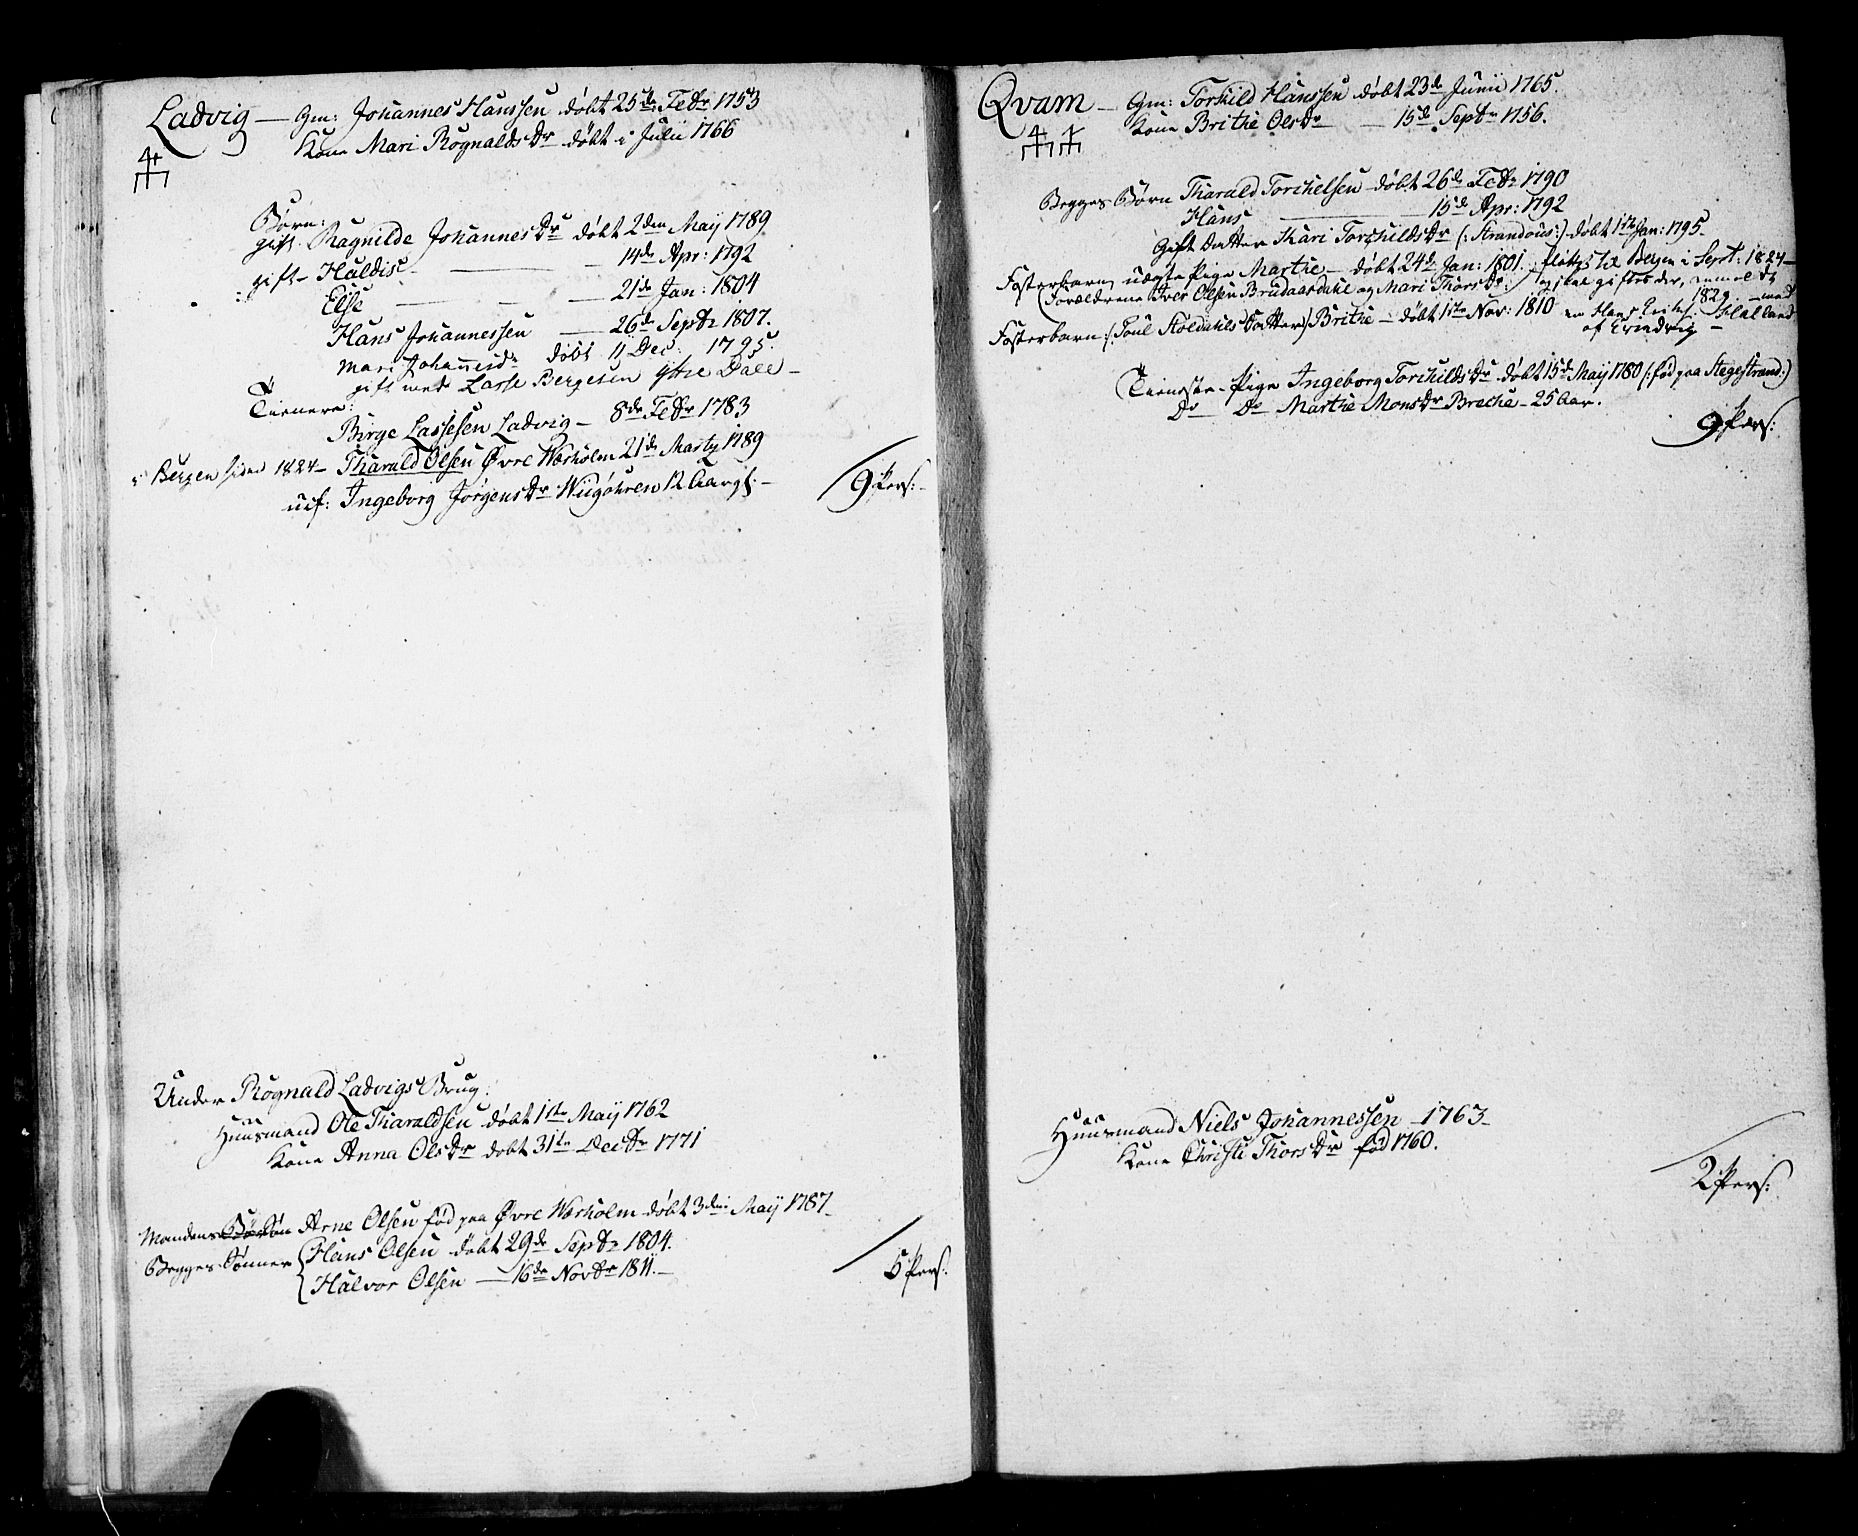 Ladvig — Gm: Johannes Hanssen døbt 25de Febr 1753
Kone Mari Rognalds Dr døbt i Julii 1766
Børn:
gift Ragnilde Johannes Dr døbt 2den May 1789
gift – Huldise — 14de Apr: 1792
Else — 21de Jan: 1804
Hans Johannessen — 26de Septr 1807.
Mari Johannisdr døbt 11 Dec: 1795.
gift med Lasse Bergesen ytre Dale –
Tienere:
Birge Lassesen Ladvig – 8de Febr 1783
i Bergen siden 1824 – Tharald Olsen Øvre Wærholm 21de Martz 1789
uef: Ingeborg Jørgens Dr 12 Aar gl. –
9 Pers: –
Under Rognald Ladvigs Brug:
Huusmand Ole Tharaldsen døbt 1ste May 1762
Kone Anna Ols Dr døbt 31te Decbr 1771
Mandens Søn Arne Olsen fød paa Øvre Wærholm døbt 3den May 1787 –
Begges Sønner Hans Olsen døbt 29de Septr 1804.
Halvor Olsen — 16de Novbr 1811. –
5 Pers.
Qvam – Gm: Torkild Hanssen døbt 23de Junii 1765.
Kone Brithe Ols Dr — 15de Septr 1756.
Begges Børn Tharald Torchelsen døbt 26de Febr 1790
Hans — 15de Apr: 1792
Gift Datter Kari Torchilds Dr (: Strandous :) døbt 1ste Jan: 1795 –
Fosterbarn uægte Pige Marthe – døbt 24de Jan: 1801. fløttes til Bergen i Sept: 1824 –
(Forældrene Iver Olsen Brudaasdahl og Mari Thors Dr:) og skal giftes der, anmeldt
1829 – med
Fosterbarn: (Poul Støldahls Datter) Brithe – døbt 1ste Nov: 1810 en Hans Halland
af Evindvig –
Tieneste-Pige Ingeborg Torchilds Dr døbt 15de May 1780 (: fød paa Stegestrand :)
Do Do Marthe Mons Dr Breche – 25 Aar.
9 Pers:
Huusmand Niels Johannessen – 1763 –
Kone Christi Thors Dr fød 1760.
2 Pers: